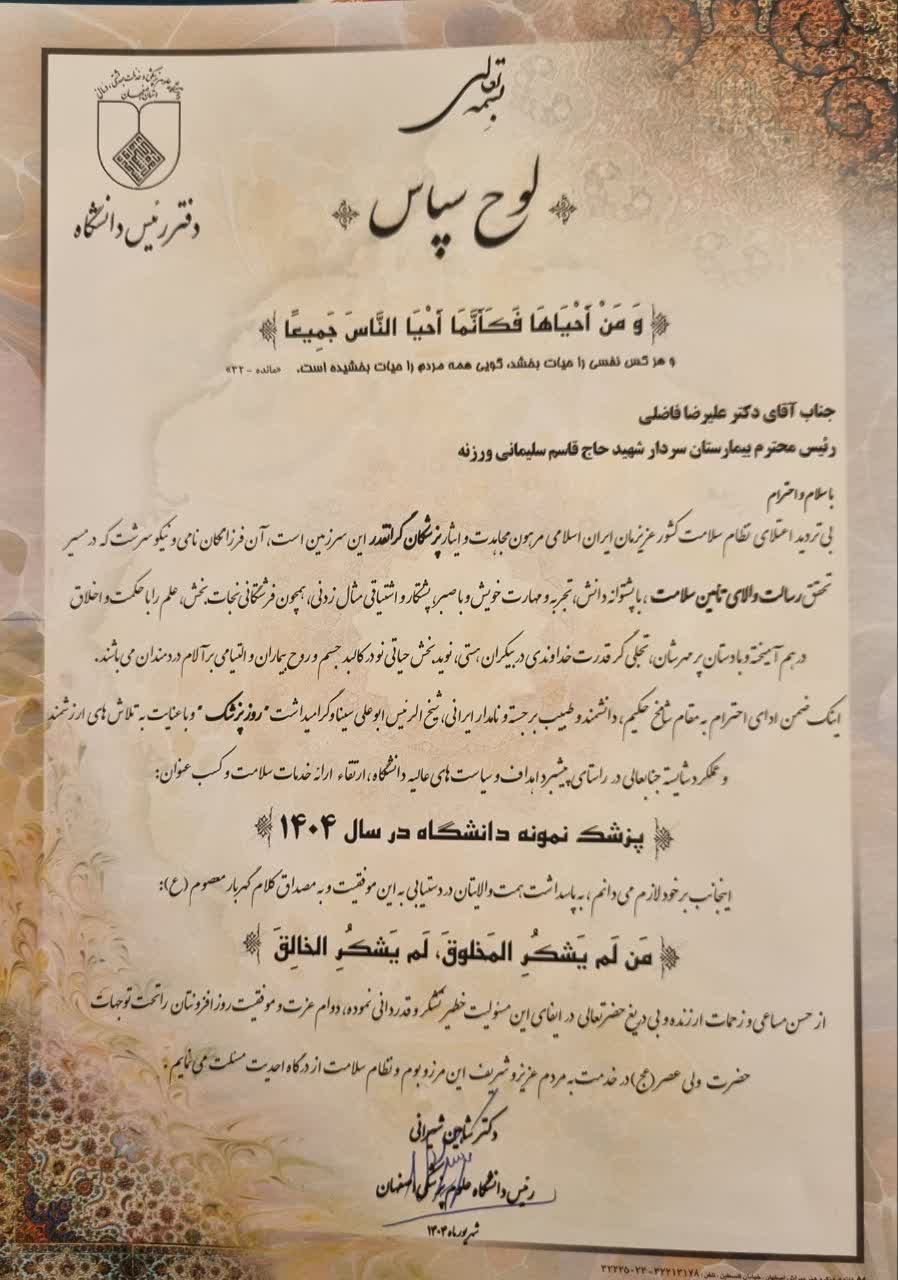 بسمه تعالی
دانشگاه علوم پزشکی و خدمات بهداشتی، درمانی
استان اصفهان
دفتر رئیس دانشگاه
لوح سپاس
وَ مَنْ أَحْيَاهَا فَكَأَنَّمَا أَحْيَا النَّاسَ جَمِيعًا
و هر کس نفسی را حیات بخشد، گویی همه مردم را حیات بخشیده است. «مائده - ۳۲»
جناب آقای دکتر علیرضا فاضلی
رئیس محترم بیمارستان سردار شهید حاج قاسم سلیمانی ورزنه
با سلام و احترام
بی تردید اعتلای نظام سلامت کشور عزیزمان ایران اسلامی مرهون مجاهدت و ایثار پزشکان گرانقدر این سرزمین است، آن فرزانگان نامی و نیکو سرشت که در مسیر
تحقق رسالت والای تأمین سلامت، با پشتوانه دانش، تجربه و مهارت خویش و با صبر، پشتکار و اشتیاقی مثال زدنی، همچون فرشتگانی نجات بخش، علم را با حکمت و اخلاق
در هم آمیخته و با دستان پر مهرشان، تجلی گر قدرت خداوندی در بیکران هستی، نوید بخش حیاتی نو در کالبد جسم و روح بیماران و التیامی بر آلام دردمندان می باشند.
اینک ضمن ادای احترام به مقام شامخ حکیم، دانشمند و طبیب برجسته و نامدار ایرانی، شیخ الرئیس ابوعلی سینا و گرامیداشت "روز پزشک" و با عنایت به تلاش های ارزشمند
و عملکرد شایسته جنابعالی در راستای پیشبرد اهداف و سیاست های عالیه دانشگاه، ارتقاء ارائه خدمات سلامت و کسب عنوان:
پزشک نمونه دانشگاه در سال ۱۴۰۴
اینجانب بر خود لازم می دانم، به پاسداشت همت والایتان در دستیابی به این موفقیت و به مصداق کلام گهربار معصوم (ع):
مَن لَم یَشکُرِ المَخلوقَ، لَم یَشکُرِ الخالِقَ
از حسن مساعی و زحمات ارزنده و بی دریغ حضرتعالی در ایفای این مسئولیت خطیر تشکر و قدردانی نموده، دوام عزت و موفقیت روز افزونتان را تحت توجهات
حضرت ولی عصر (عج) در خدمت به مردم عزیز و شریف این مرز و بوم و نظام سلامت از درگاه احدیت مسئلت می نمایم.
دکتر شاهین شیرانی
رئیس دانشگاه علوم پزشکی اصفهان
شهریور ماه ۱۴۰۴
اصفهان، خیابان فلسطین، تلفن: ۳۲۲۱۳۱۷۸ - ۳۲۲۲۵۰۲۲